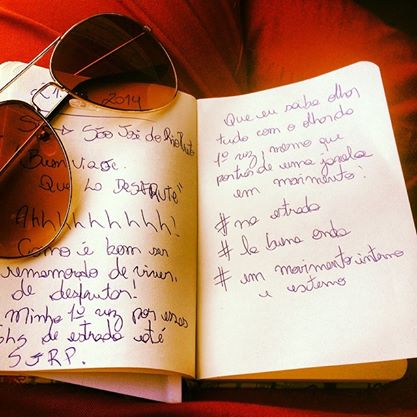 2014
São José do Rio Preto
Buen viaje.
Que Lo DESFRUTE"
Ahhhhhhhhh!
Como é bom ser
rememorado de viver,
de desfrutar!
Minha 1ª vez por essas
5hs de estrada até
SJRP.
Que eu saiba olhar
tudo com o olhar da
1ª vez, mesmo que
por trás de uma janela
em movimento!
# na estrada
# la buena onda
# em movimento interno
e externo